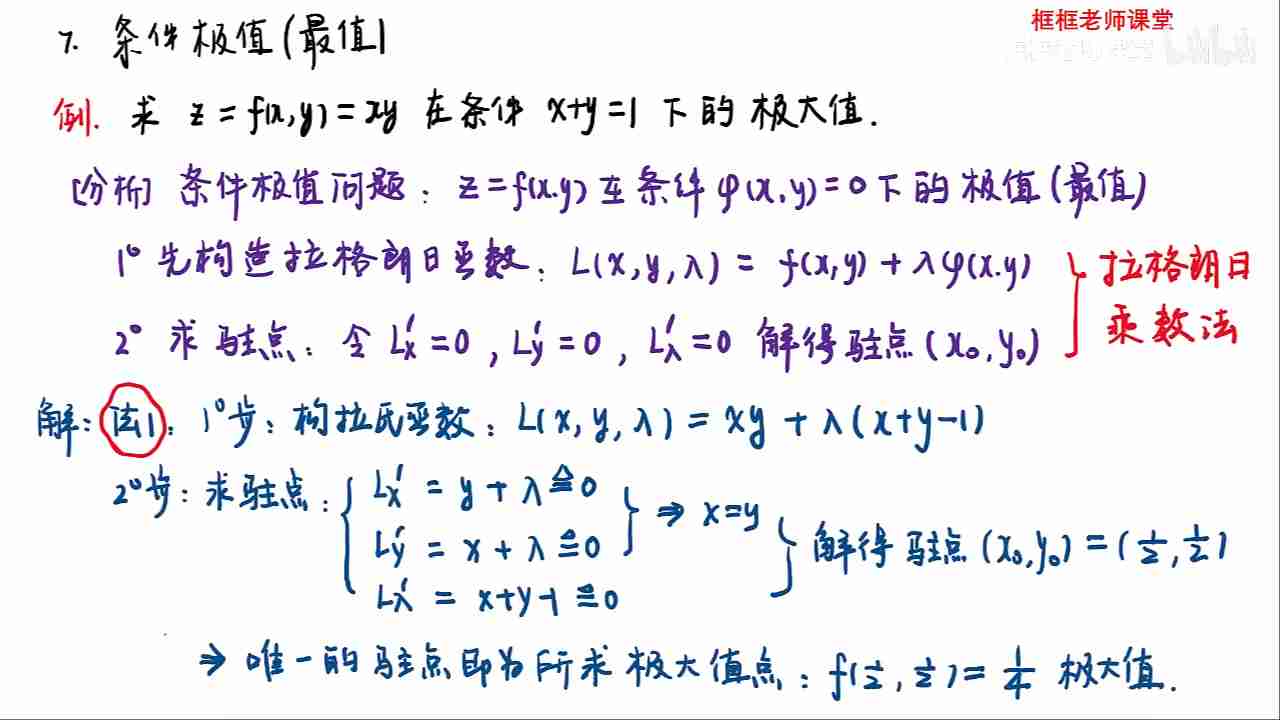 框框老师课堂
7. 条件极值(最值)
例. 求 z=f(x,y)=xy 在条件 x+y=1 下的极大值.
[分析] 条件极值问题: z=f(x.y) 在条件 φ(x,y)=0 下的极值(最值)
1° 先构造拉格朗日函数: L(x,y,λ) = f(x,y) + λφ(x.y)
2° 求驻点: 令 L'x=0, L'y=0, L'λ=0 解得驻点(x₀,y₀)
拉格朗日
乘数法
解: 法1: 1°步: 构拉氏函数: L(x,y,λ) = xy + λ(x+y-1)
2°步: 求驻点: { L'x = y+λ ≙ 0
L'y = x+λ ≙ 0 } ⇒ x=y
L'λ = x+y-1 ≙ 0 } 解得驻点(x₀,y₀)=(1/2,1/2)
⇒ 唯一的驻点即为所求极大值点: f(1/2,1/2)=1/4 极大值.